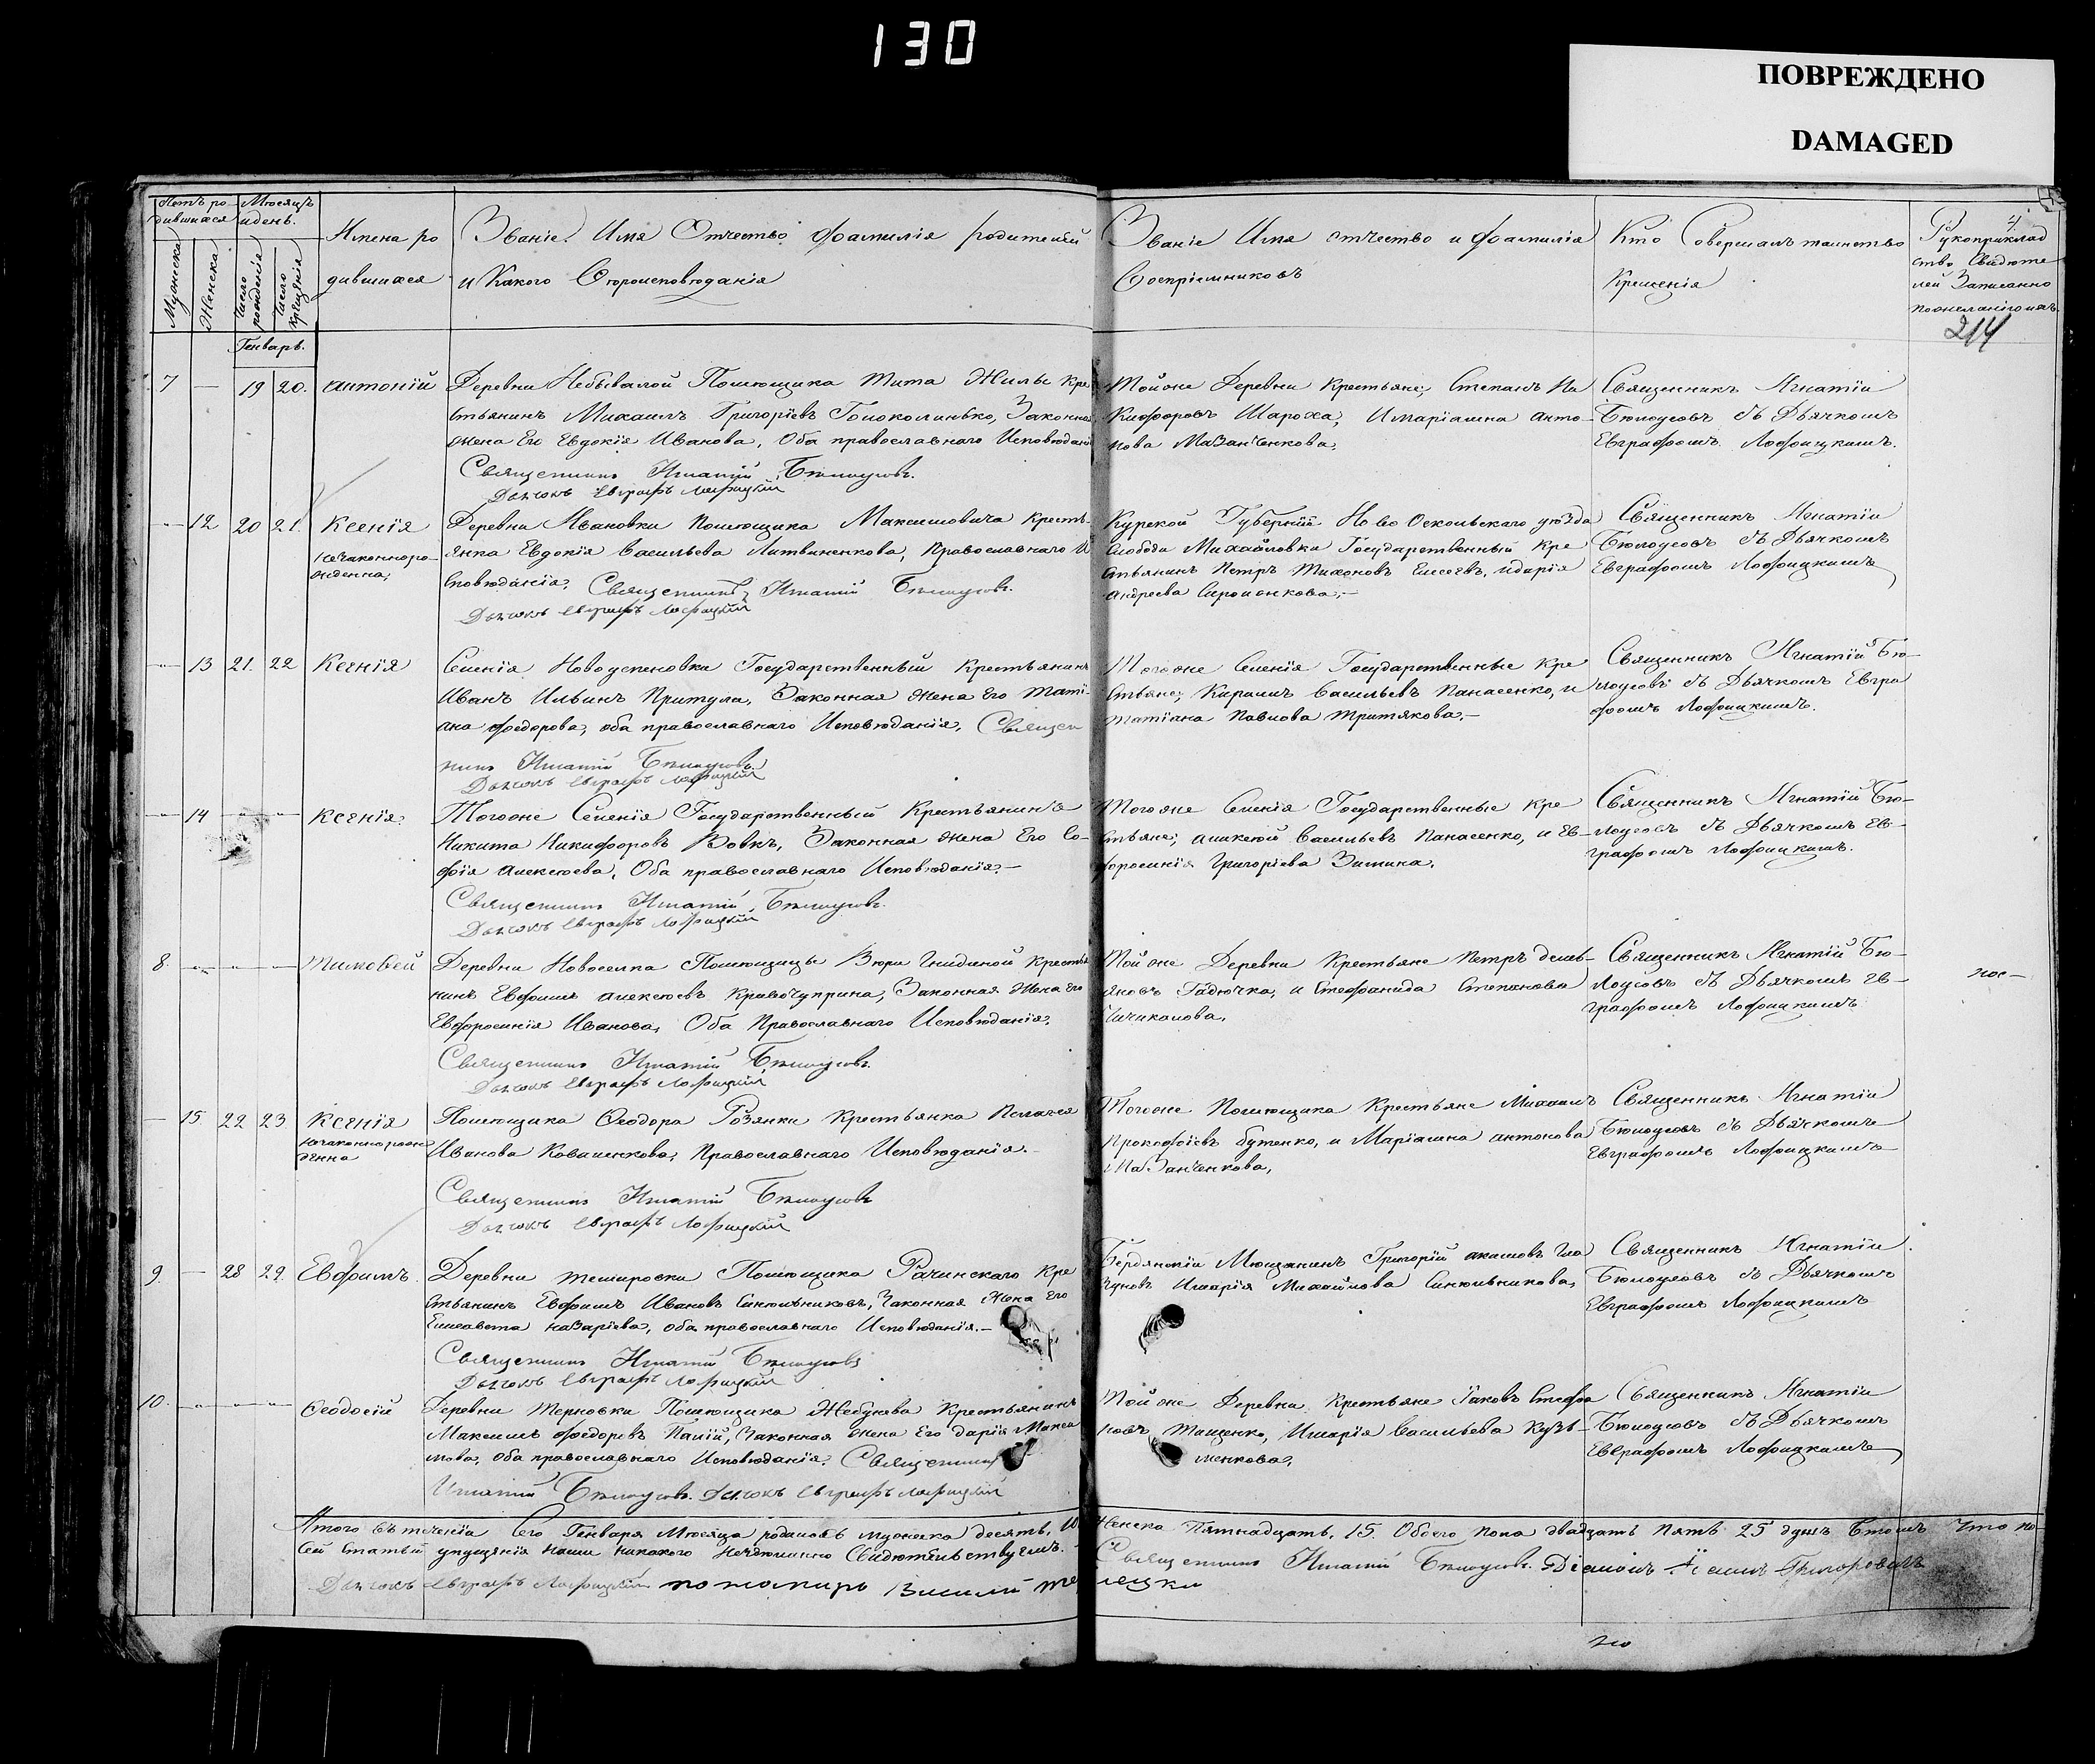 130
ПОВРЕЖДЕНО
DAMAGED
Счетъ ро
дившихся
Мужеска
Женска
Мѣсяцъ
и день.
Число
рожденія
Число
крещенія
Имена ро
дившихся
Званіе, Имя Отчество фамилія родителей
и Какого Вѣроисповѣданія
Званіе Имя отчество и фамилія
Воспріемниковъ
Кто Совершалъ таинство
Крещенія
Рукоприклад
ство Свидѣте
лей Записанно
по желанію ихъ.
4.
214
Генварь.
7 — 19 20. Антоній
Деревни Небывалой Помѣщика Тита Жилы Кре
стьянинъ Михаилъ Григоріевъ Законная
жена Его Евдокія Иванова, Оба православнаго Исповѣданія
Священникъ Игнатій Бѣлоусовъ.
Дьячокъ Евграфъ Лофицкій
Той же Деревни Крестьяне, Степанъ Ни
кифоровъ Шароха, и Маріамна Анто-
нова Мазанченкова,
Священникъ Игнатій
Бѣлоусовъ съ Дьячкомъ
Евграфомъ Лофицкимъ.
— 12 20 21. Ксенія
незаконноро-
жденна,
Деревни Ивановки Помѣщика Максимовича Кресть-
янка Евдокія Васильева Литвиненкова, Православнаго И
сповѣданія, Священникъ Игнатій Бѣлоусовъ.
Дьячокъ Евграфъ Лофицкій
Курской Губерніи Ново Оскольскаго уѣзда
слободы Михайловки Государственный Кре
стьянинъ Петръ Тихоновъ Елисеевъ, и Дарія
Андреева,—
Священникъ Игнатій
Бѣлоусовъ съ Дьячкомъ
Евграфомъ Лофицкимъ
— 13 21. 22 Ксенія
Селенія Новоуспеновки Государственный Крестьянинъ
Иванъ Ильинъ Притула, Законная жена Его Тати-
ана Федорова, оба православнаго Исповѣданія, Священ
никъ Игнатій Бѣлоусовъ.
Дьячокъ Евграфъ Лофицкій
Того же Селенія Государственные Кре
стьяне, Кирилъ Васильевъ Панасенко, и
Татіана Павлова Тритякова,—
Священникъ Игнатій Бѣ-
лоусовъ съ Дьячкомъ Евгра
фомъ Лофицкимъ.
— 14 — — Ксенія.
Того же Селенія Государственный Крестьянинъ
Никита Никифоровъ Вовкъ, Законная жена Его Со-
фія Алексѣева, Оба православнаго Исповѣданія,—
Священникъ Игнатій Бѣлоусовъ.
Дьячокъ Евграфъ Лофицкій
Того же Селенія Государственные Кре
стьяне, Алексѣй Васильевъ Панасенко, и Ев-
фросинія Григоріева Зимина,
Священникъ Игнатій Бѣ-
лоусовъ съ Дьячкомъ Ев-
графомъ Лофицкимъ.
8. — — — Тимофей
Деревни Новоселка Помѣщицы Крестья
нинъ Евфимъ Алексѣевъ Кравочуприна, Законная Жена Его
Евфросинія Иванова, Оба Православнаго Исповѣданія,
Священникъ Игнатій Бѣлоусовъ.
Дьячокъ Евграфъ Лофицкій
Той же Деревни Крестьяне Петръ Демь-
яновъ Гадючка, и Стефанида Степанова
Чичикалова,
Священникъ Игнатій Бѣ-
лоусовъ съ Дьячкомъ Ев-
графомъ Лофицкимъ
— 15. 22 23 Ксенія
незаконнорож
денна
Помѣщика Феодора Розянки Крестьянка Пелагея
Иванова Коваленкова, Православнаго Исповѣданія.—
Священникъ Игнатій Бѣлоусовъ
Дьячокъ Евграфъ Лофицкій
Того же Помѣщика Крестьяне Михаилъ
Прокофіевъ Бутенко, и Маріамна Антонова
Мазанченкова,
Священникъ Игнатій
Бѣлоусовъ съ Дьячкомъ
Евграфомъ Лофицкимъ
9. — 28 29. Евфимъ.
Деревни Темировки Помѣщика Рачинскаго Кре
стьянинъ Евфимъ Ивановъ Синельниковъ, Законная Жена Его
Елисавета Назаріева, оба православнаго Исповѣданія.—
Священникъ Игнатій Бѣлоусовъ
Дьячокъ Евграфъ Лофицкій
Бердянскій Мѣщанинъ Григорій
и Марія Михайлова Синельникова,
Священникъ Игнатій
Бѣлоусовъ съ Дьячкомъ
Евграфомъ Лофицкимъ
10. — — — Феодосій
Деревни Терновки Помѣщика Жебунева Крестьянинъ
Максимъ Федоровъ Палій, Законная жена Его Дарія Макси
мова, оба православнаго Исповѣданія. Священникъ
Игнатій Бѣлоусовъ. Дьячокъ Евграфъ Лофицкій
Той же Деревни Крестьяне Іаковъ Стефа
новъ Тащенко, и Марія Васильева Кузь-
менкова,
Священникъ Игнатій
Бѣлоусовъ съ Дьячкомъ
Евграфомъ Лофицкимъ
Итого въ теченіи Сего Генваря Мѣсяца родилось мужеска десять, 10 Женска Пятнадцать, 15. Обоего пола двадцать пять 25 душъ Въ томъ Что по
сей Статьи упущенія Нами никакого не учинено Свидѣтельствуемъ.— Священникъ Игнатій Бѣлоусовъ. Діаконъ Григоровичъ
Дьячокъ Евграфъ Лофицкій пономарь Василій